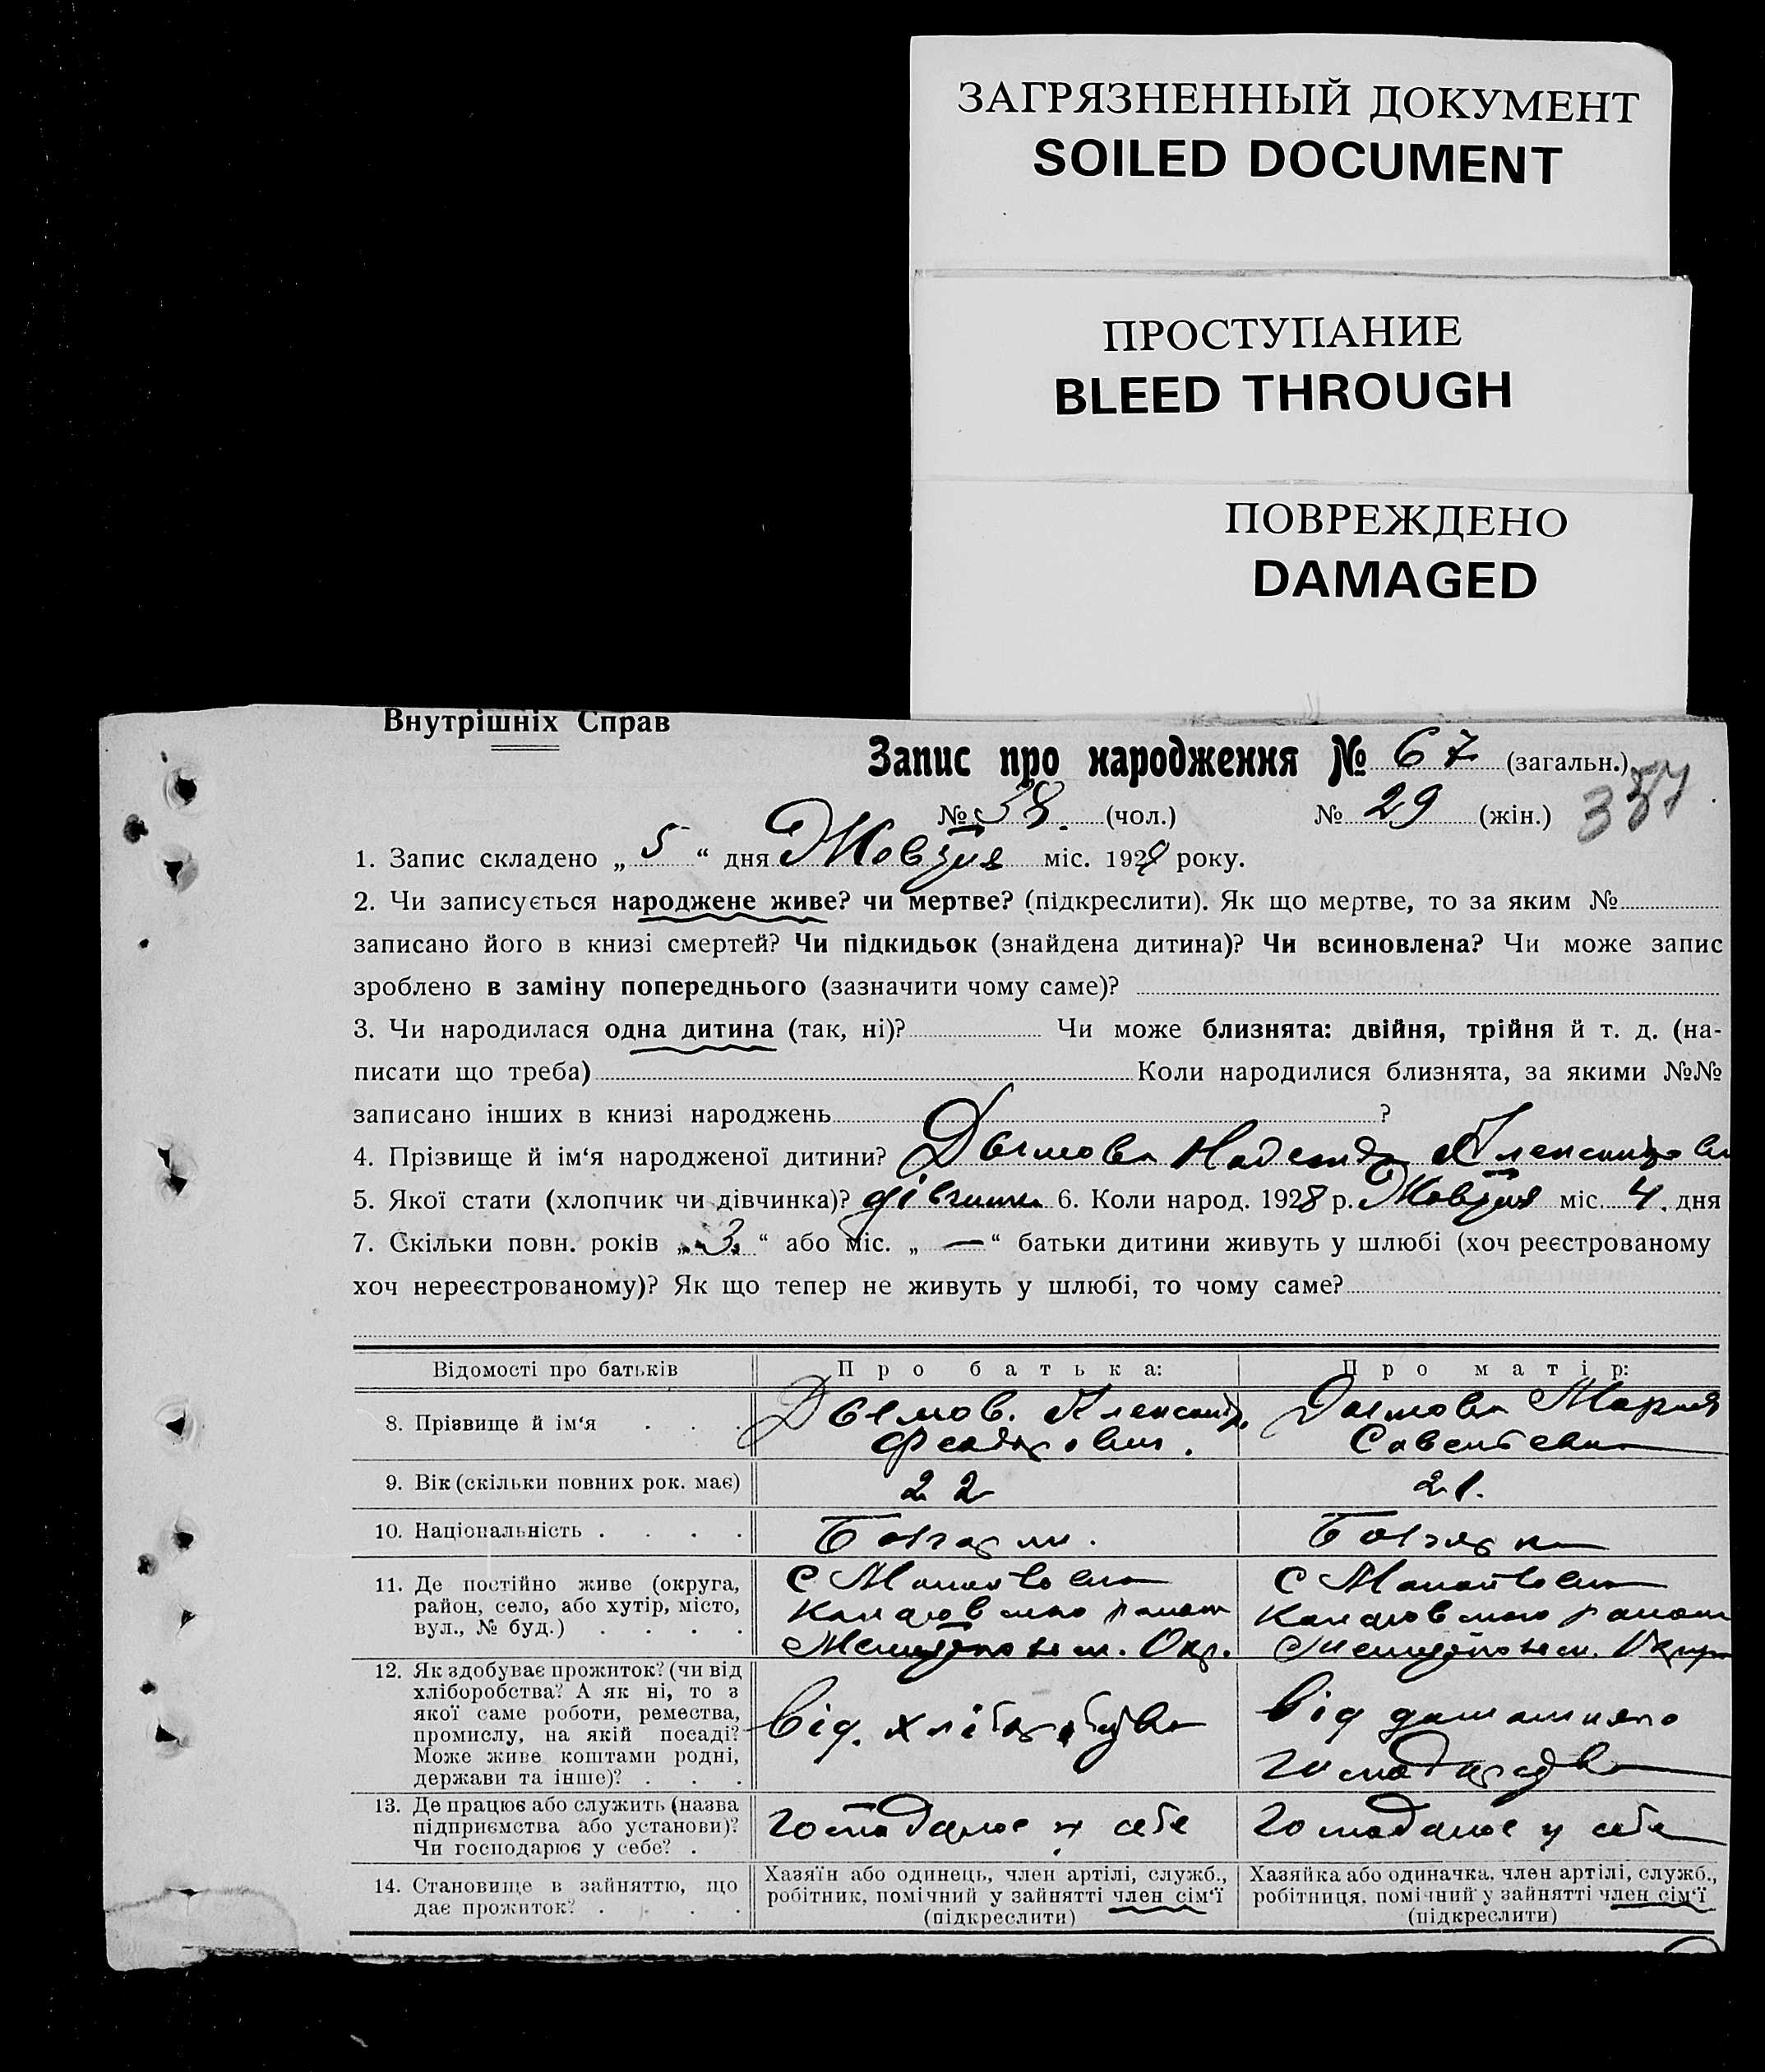 ЗАГРЯЗНЕННЫЙ ДОКУМЕНТ
SOILED DOCUMENT
ПРОСТУПАНИЕ
BLEED THROUGH
ПОВРЕЖДЕНО
DAMAGED
Внутрішніх Справ
Запис про народження № 67 (загальн.)
№ 38. (чол.) № 29 (жін.) 357
1. Запис складено „ 5 “ дня Жовтня міс. 1928 року.
2. Чи записується народжене живе? чи мертве? (підкреслити). Як що мертве, то за яким №
записано його в книзі смертей? Чи підкидьок (знайдена дитина)? Чи всиновлена? Чи може запис
зроблено в заміну попереднього (зазначити чому саме)?
3. Чи народилася одна дитина (так, ні)? Чи може близнята: двійня, трійня й т. д. (на-
писати що треба) Коли народилися близнята, за якими №№
записано інших в книзі народжень ?
4. Прізвище й ім‘я народженої дитини? Надежда
5. Якої стати (хлопчик чи дівчинка)? дівчинка 6. Коли народ. 1928 р. Жовтня міс. 4. дня
7. Скільки повн. років „ 3. “ або міс. „ — “ батьки дитини живуть у шлюбі (хоч реєстрованому
хоч нереєстрованому)? Як що тепер не живуть у шлюбі, то чому саме?
Відомості про батьків Про батька: Про матір:
8. Прізвище й ім‘я . . . Мария
9. Вік (скільки повних рок. має) 22 21.
10. Національність . . . . Болгарин. Болгарка
11. Де постійно живе (округа,
район, село, або хутір, місто,
вул., № буд.) . . . .
с
с
района
района
Окр.
12. Як здобуває прожиток? (чи від
хліборобства? А як ні, то з
якої саме роботи, ремества,
промислу, на якій посаді?
Може живе коштами родні,
держави та інше)? . . .
від. хліборобства
від домашняго
господарства
13. Де працює або служить (назва
підприємства або установи)?
Чи господарює у себе? .
господарює у себе
господарює у себе
14. Становище в зайняттю, що
дає прожиток? . . . .
Хазяїн або одинець, член артілі, служб.,
робітник, помічний у зайнятті член сім‘ї
(підкреслити)
Хазяйка або одиначка, член артілі, служб.,
робітниця, помічний у зайнятті член сім‘ї
(підкреслити)